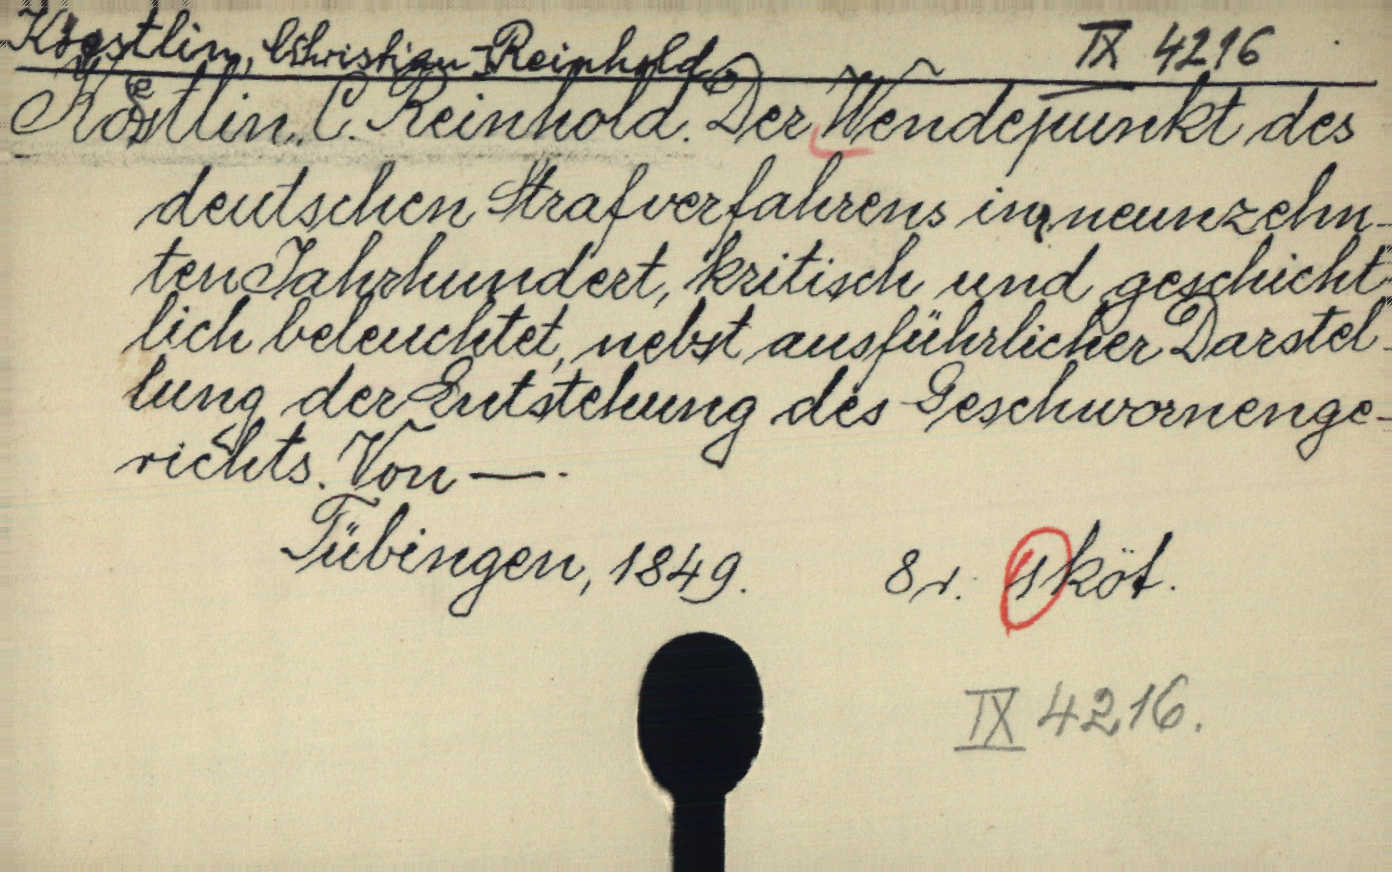 Koestlin, Christian-Reinhold. IX 4216
Köstlin, C. Reinhold. Der Wendepunkt des
deutschen Strafverfahrens im neunzehn-
ten Jahrhundert, kritisch und geschicht-
lich beleuchtet, nebst ausführlicher Darstel-
lung der Entstehung des Geschwornenge-
richts. Von —.
Tübingen, 1849. 8r. 1 köt.
IX 4216.